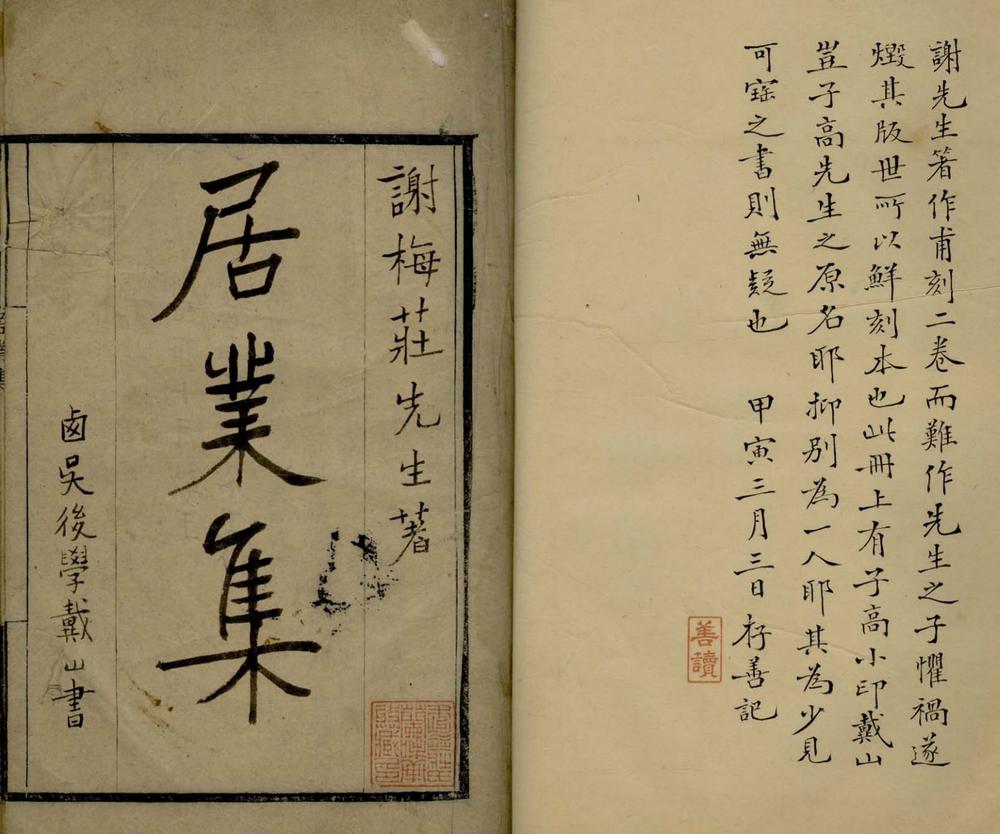 謝先生箸作甫刻二卷而難作先生之子懼禍遂
燬其版世所以鮮刻本也此冊上有子高小印戴山
豈子高先生之原名耶抑別為一人耶其為少見
可寚之書則無疑也　甲寅三月三日存善記
善讀
謝梅莊先生著
居業集
卥吳後學戴山書